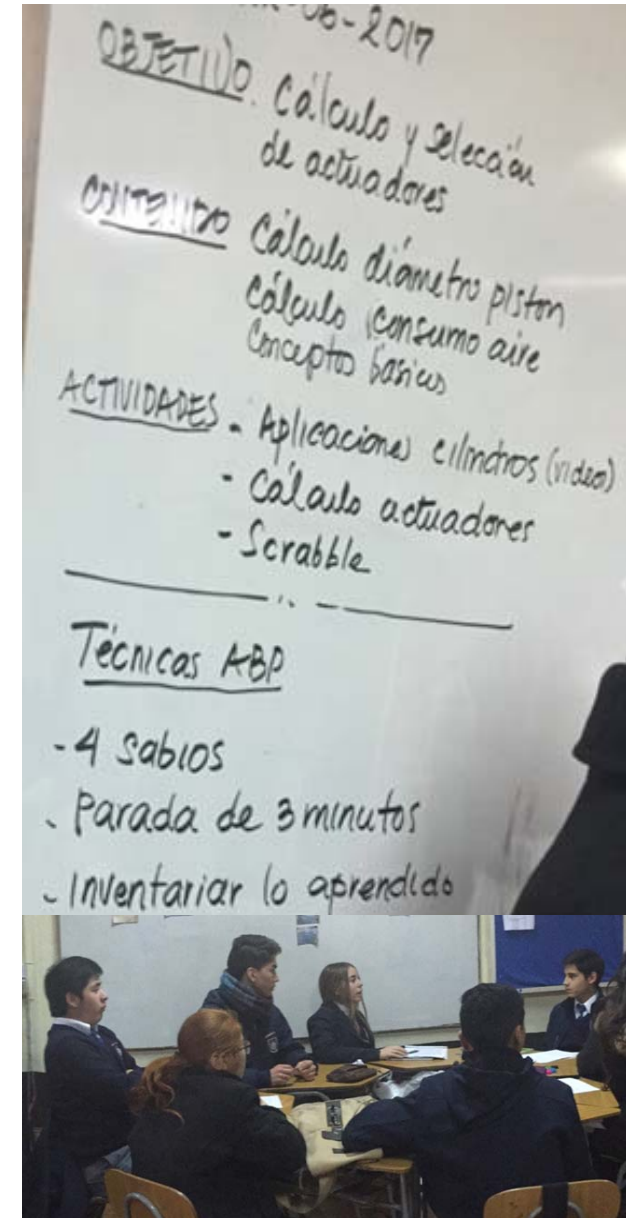 08-2017
OBJETIVO. Cálculo y selección
de actuadores
CONTENIDO Cálculo diámetro piston
Cálculo consumo aire
Conceptos básicos
ACTIVIDADES - Aplicaciones cilindros (video)
- Cálculo actuadores
- Scrabble
Técnicas ABP
- 4 Sabios
- Parada de 3 minutos
- Inventariar lo aprendido